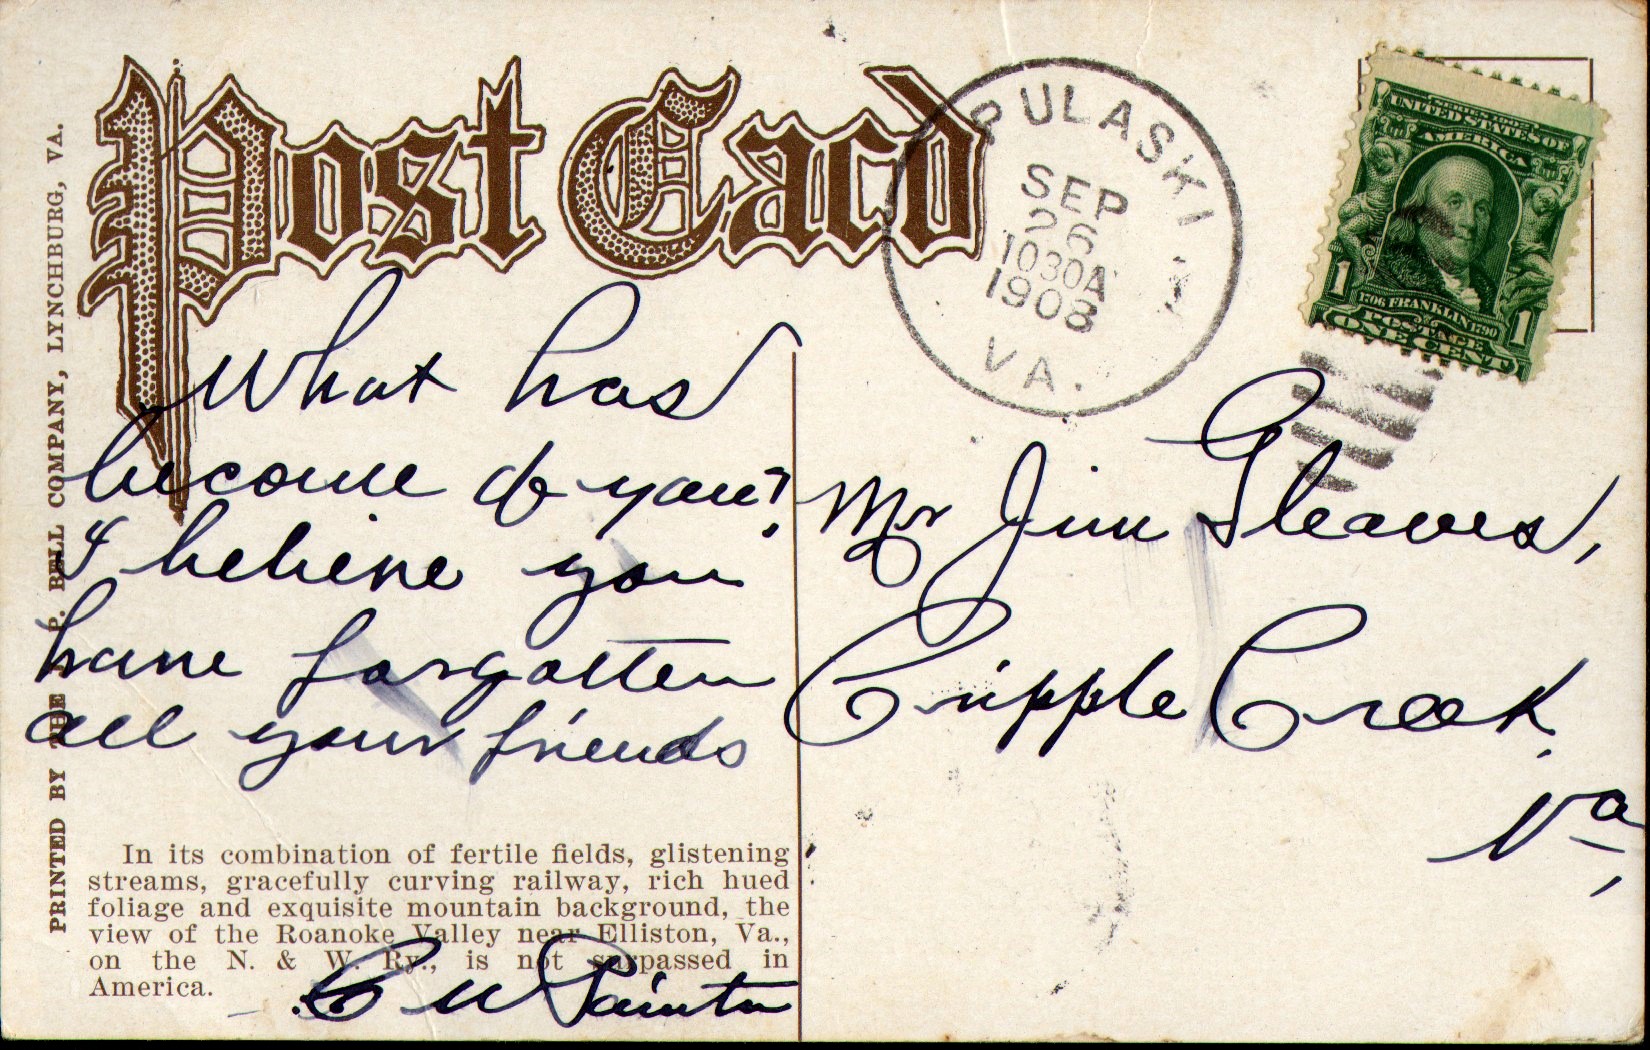 Post Card
PULASKI
SEP
26
1030A
1908
VA.
SERIES 1902
UNITED STATES OF
AMERICA
1706 FRANKLIN 1790
1 1
POSTAGE
ONE CENT
PRINTED BY THE J. P. BELL COMPANY, LYNCHBURG, VA.
What has
become of you?
I believe you
have forgotten
all your friends
Mr Jim Gleaves,
Cripple Creek,
Va,
In its combination of fertile fields, glistening
streams, gracefully curving railway, rich hued
foliage and exquisite mountain background, the
view of the Roanoke Valley near Elliston, Va.,
on the N. & W. Ry., is not surpassed in
America.
Painter